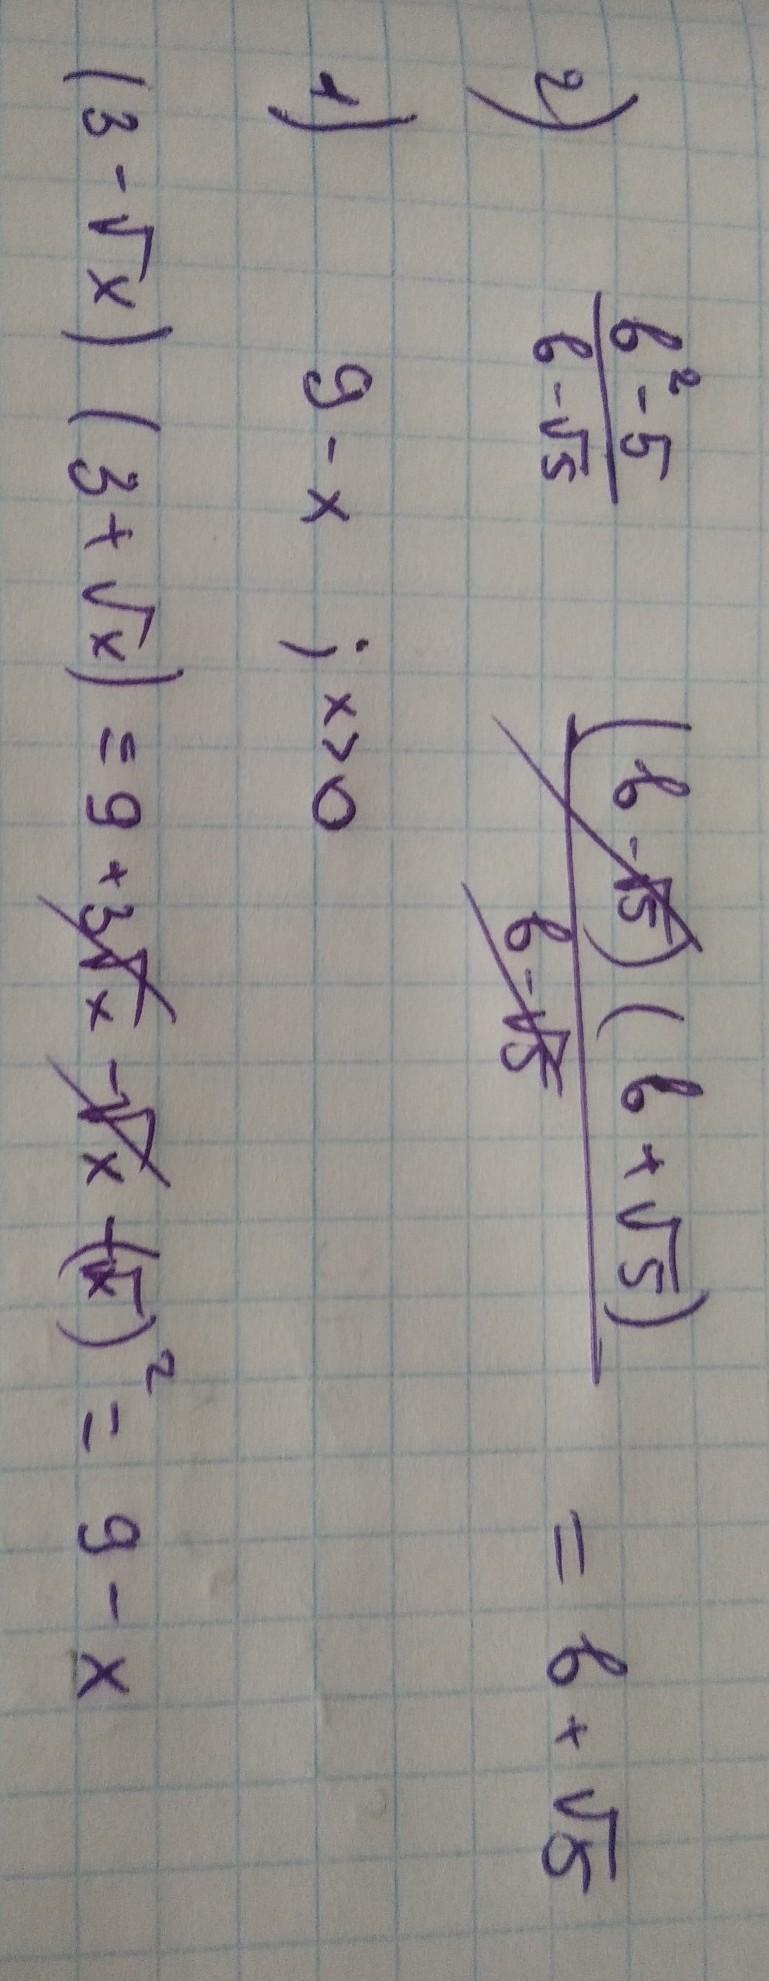 2) b²-5 / b-√5 (b-√5)(b+√5) / b-√5 = b+√5
1) 9-x ; x>0
(3-√x)(3+√x) = 9+3√x-√x-(√x)² = 9-x